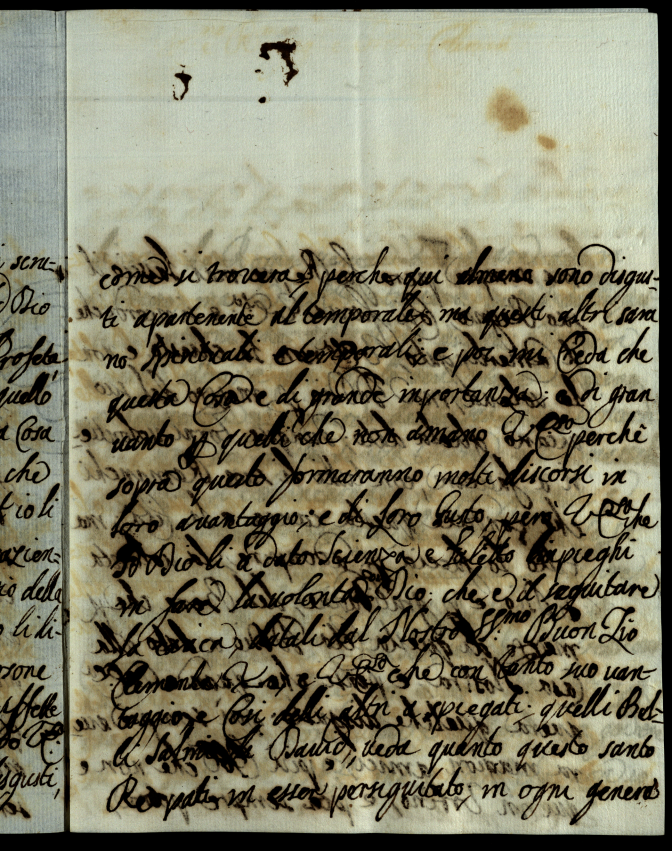 scru-
Dio
Profeta
quello
a Cosa
che
t io li
azien-
no della
o li di-
rsone
uffelle
do V.
isgusti,
come si trovera perche qui almeno sono disgus-
ti apartenente al temporale; ma questi altri sara
no spirituali e temporali; e poi mi Creda che
questa Cosa e di grande inportanza; e di gran
vanto p quelli che non amano V. Ecc.za perchè
sopra questo formaranno molti discorsi in
loro avantaggio; e di loro Gusto, però V. Ecc.za che
Dio li à dato Scienza e Talento Inpieghi
in fare la volontà Dio: che e il seguitare
la dati dal Nostro SS.mo Buon Zio
Clemente e V. Ecc.za che con tanto suo van-
taggio e Cosi delli altri à spiegati quelli Bel-
li Salmi di David, veda quanto questo santo
Re pati in esser perseguitato in ogni genere